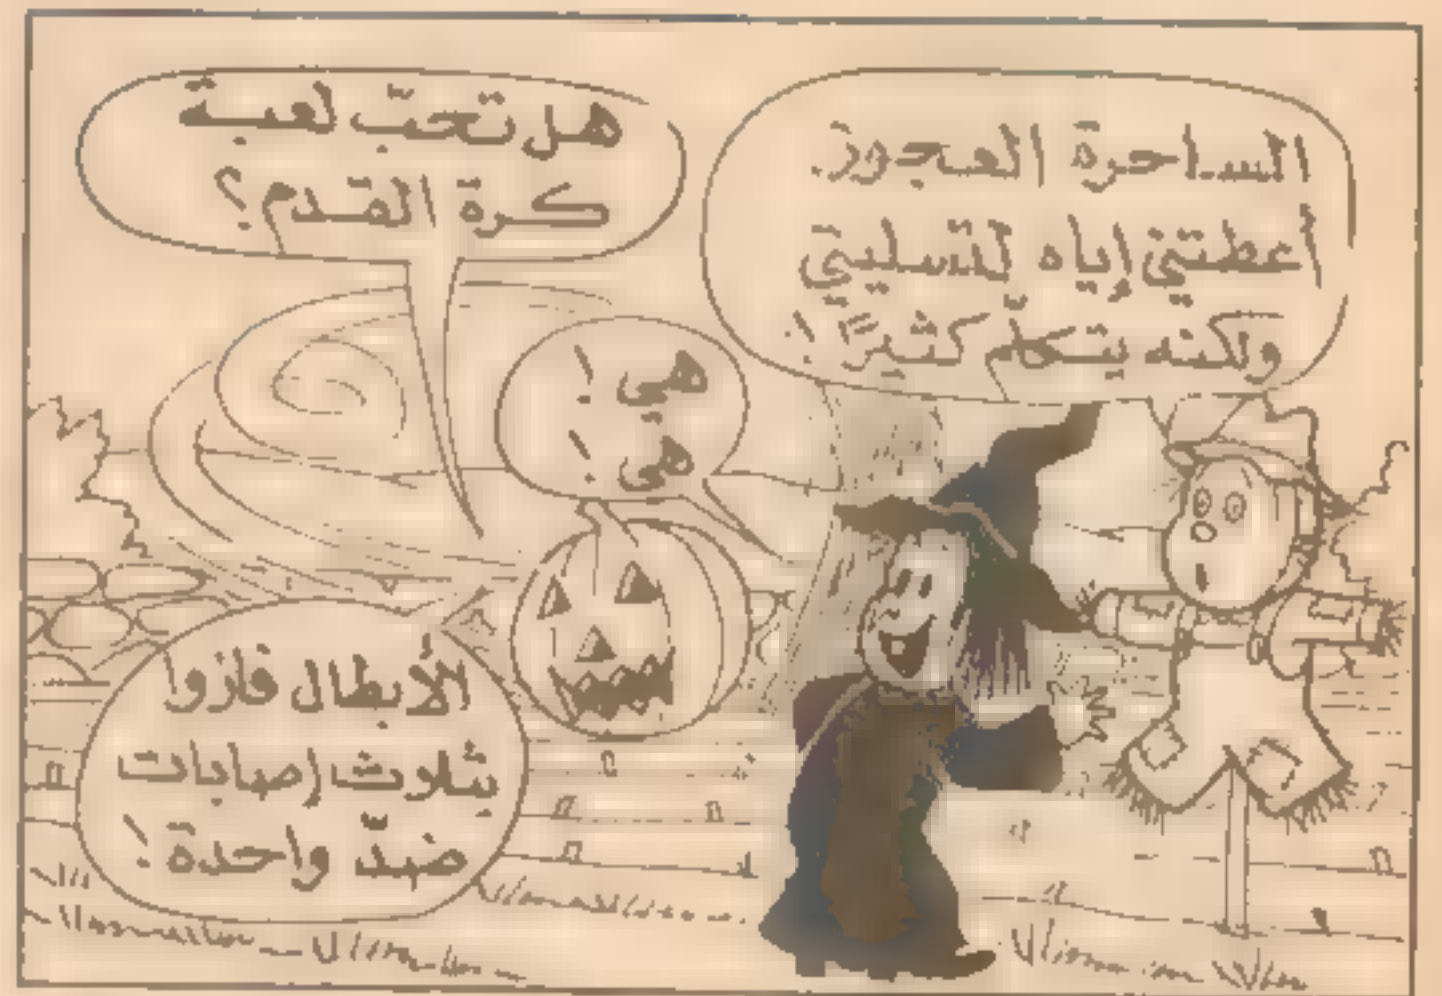 الساحرة العجوز
أعطتني إياه لتسليتي
ولكنه يتكلّم كثيرًا!
هل تحبّ لعبة
كرة القدم؟
هي!
هي!
الأبطال فازوا
بثلاث إصابات
ضدّ واحدة!